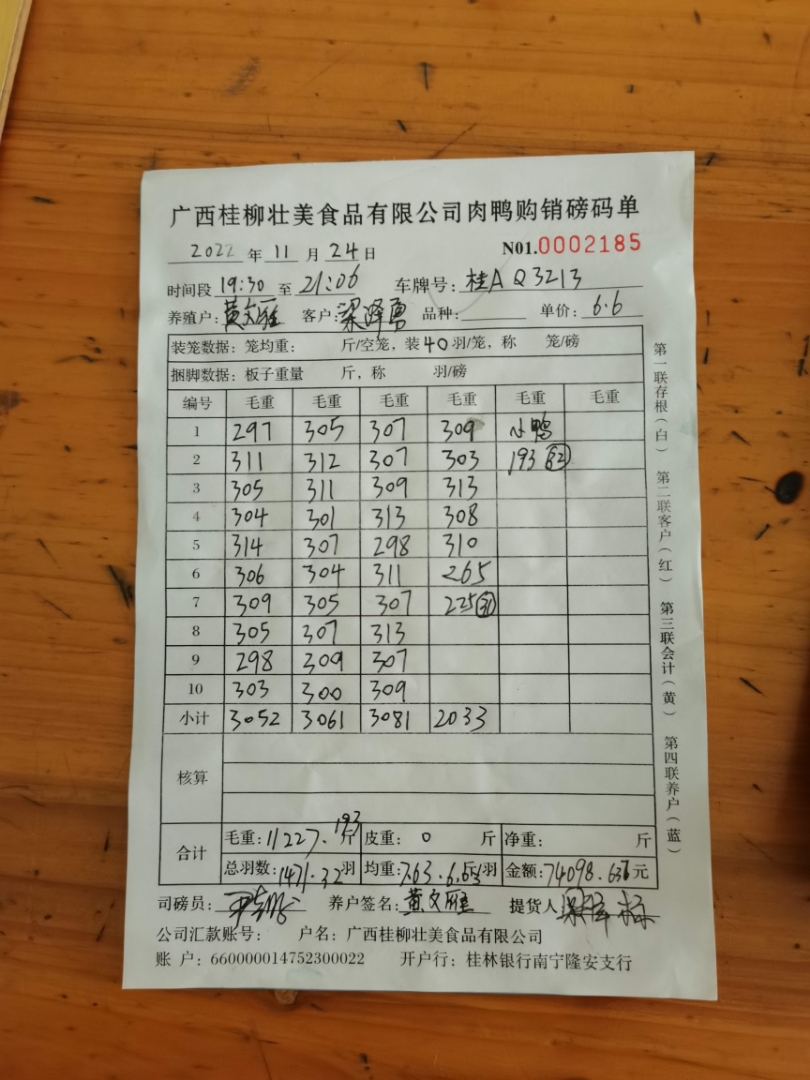 广西桂柳壮美食品有限公司肉鸭购销磅码单
2022 年 11 月 24 日 N01.0002185
时间段 19:30 至 21:06 车牌号: 桂A Q3213
养殖户: 黄文雅 客户: 梁泽勇 品种: 单价: 6.6
装笼数据: 笼均重: 斤/空笼, 装 40 羽/笼, 称 笼/磅
捆脚数据: 板子重量 斤, 称 羽/磅
编号 毛重 毛重 毛重 毛重 毛重 毛重
1 297 305 307 309 小鸭
2 311 312 307 303 193 32
3 305 311 309 313
4 304 301 313 308
5 314 307 298 310
6 306 304 311 265
7 309 305 307 225 31
8 305 307 313
9 298 309 307
10 303 300 309
小计 3052 3061 3081 2033
核算
合计 毛重: 11227. 193 斤 皮重: 0 斤 净重: 斤
总羽数: 1471. 32 羽 均重: 7.63. 羽 金额: 元
司磅员: 养户签名: 黄文雅 提货人
公司汇款账号: 户名: 广西桂柳壮美食品有限公司
账 户: 660000014752300022 开户行: 桂林银行南宁隆安支行
第一联存根(白) 第二联客户(红) 第三联会计(黄) 第四联养户(蓝)